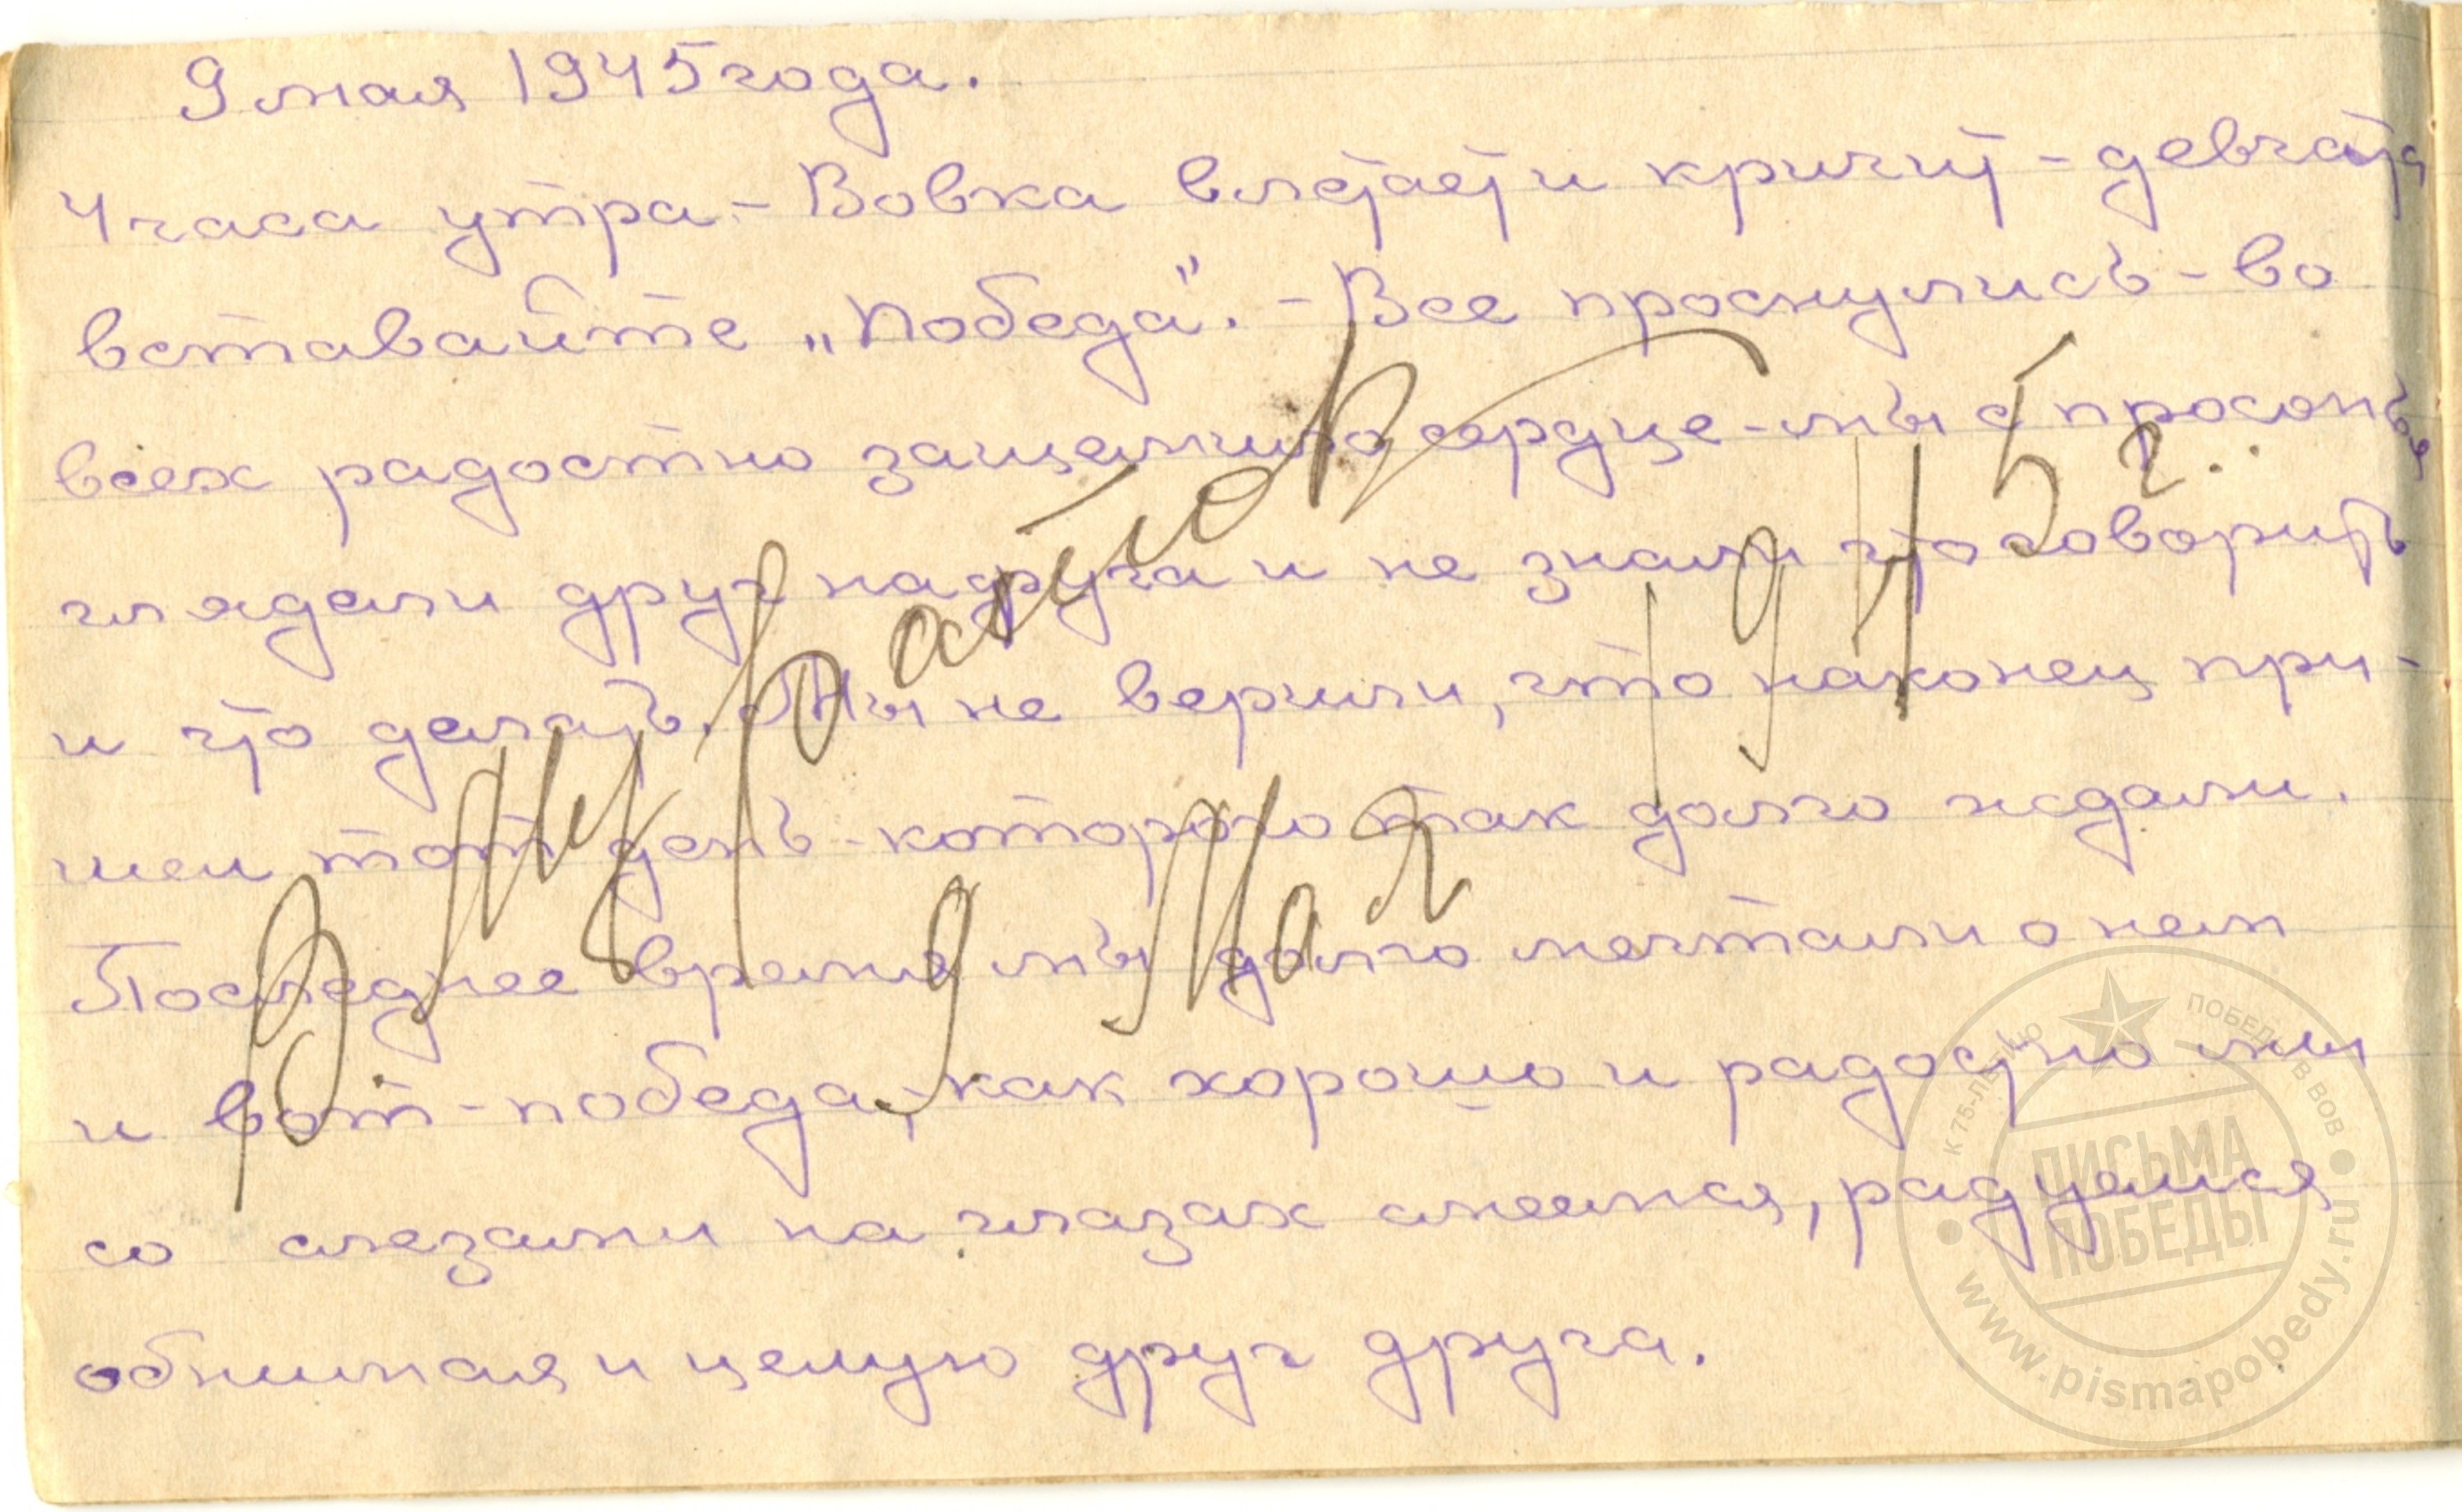 9 мая 1945 года.
4 часа утра. - Вовка влетает и кричит - девчата
вставайте „Победа". - Все проснулись - во
всех радостно защемило сердце - мы с просонья
глядели друг на друга и не знали что говорить
и что делать. Мы не верили, что наконец при-
шел тот день - которого так долго ждали.
Последнее время мы долго мечтали о нем
и вот - победа, - как хорошо и радостно мы
со слезами на глазах смеемся, радуемся
обнимая и целую друг друга.
9 мая 1945 г.
К 75-ЛЕТИЮ ПОБЕДЫ В ВОВ
ПИСЬМА
ПОБЕДЫ
www.pismapobedy.ru